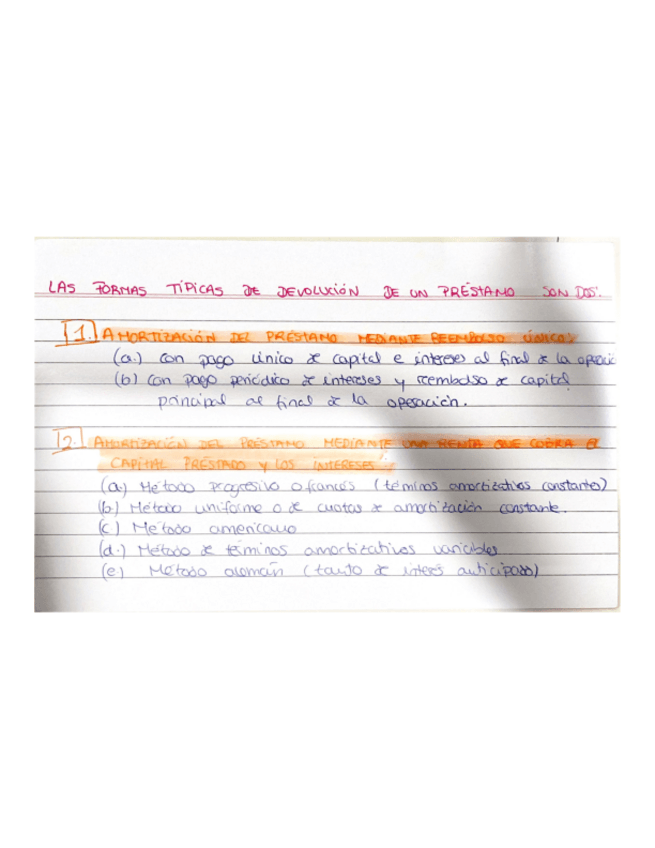 LAS FORMAS TÍPICAS DE DEVOLUCIÓN DE UN PRÉSTAMO SON DOS:
1. AMORTIZACIÓN DEL PRÉSTAMO MEDIANTE REEMBOLSO ÚNICO:
(a.) Con pago único de capital e intereses al final de la operació
(b) Con pago periódico de intereses y reembolso de capital
principal al final de la operación.
2. AMORTIZACIÓN DEL PRÉSTAMO MEDIANTE UNA RENTA QUE COBRA EL
CAPITAL PRESTADO Y LOS INTERESES:
(a.) Método progresivo o francés (términos amortizativos constantes)
(b.) Método uniforme o de cuotas de amortización constante.
(c) Método americano
(d.) Método de términos amortizativos variables
(e) Método alemán (tanto de interés anticipado)